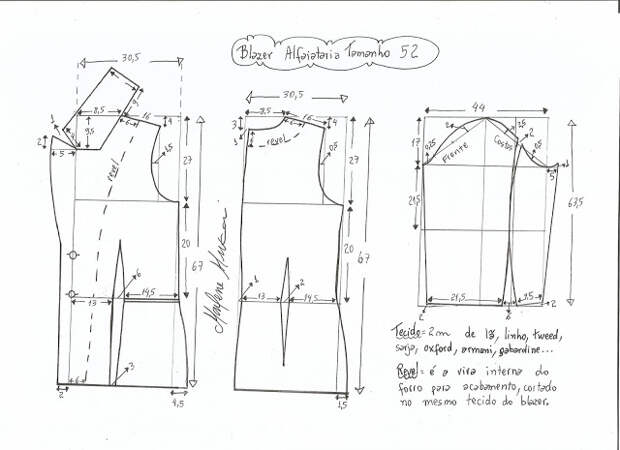 Blazer Alfaiataria Tamanho 52
30,5
8,5
16
6
4
9,5
1
2
5
revel
1,5
27
20
67
6
13
14,5
3
6
2
4,5
Marlene Mukai
30,5
8,5
16
6
4
3
1
revel
0,5
27
20
67
1
13
2
14,5
1,5
44
17
0,25
2
Frente
Costas
2,5
2
0,5
1
5
21,5
63,5
21,5
9,5
2
2
Tecido = 2m de lã, linho, tweed,
sarja, oxford, armani, gabardine...
Revel = é a vira interna do
forro para acabamento, cortado
no mesmo tecido do blazer.